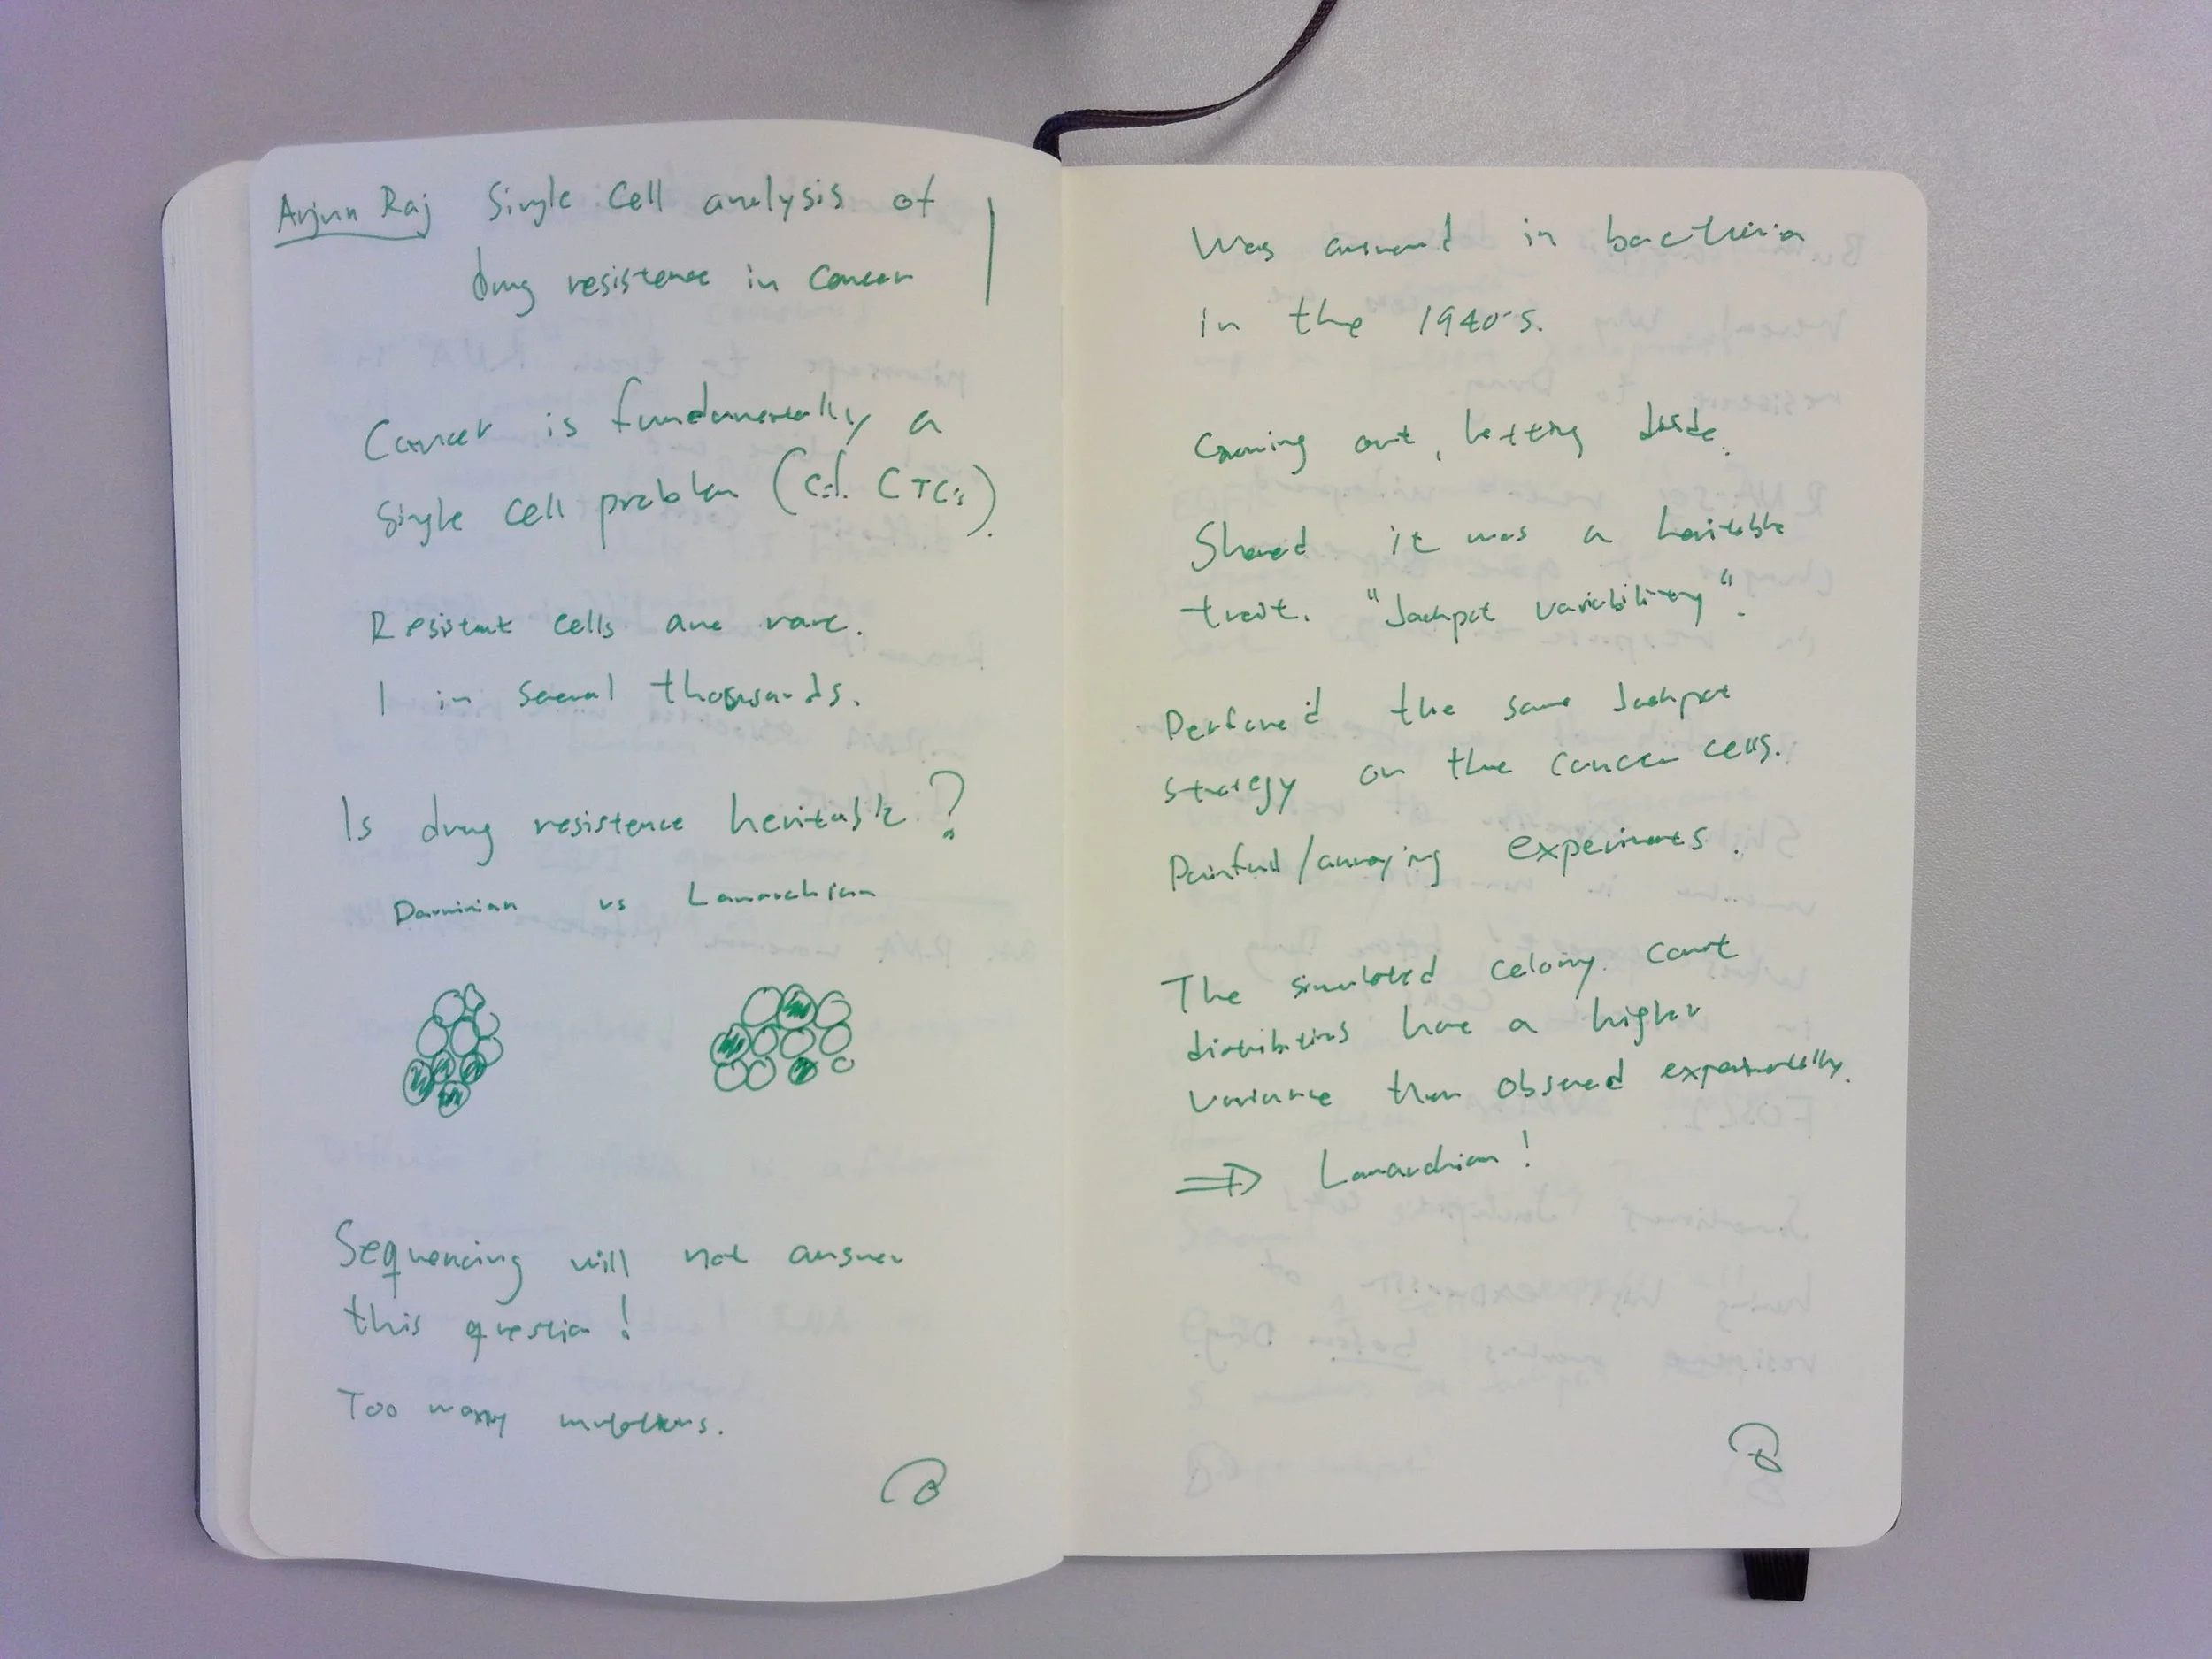 Arjun Raj Single Cell analysis of
drug resistence in cancer
Cancer is fundamentally a
single cell problem (c.f. CTCs).
Resistant cells are rare.
1 in several thousands.
Is drug resistence heritable?
Darwinian vs Lamarckian
Sequencing will not answer
this question!
Too many mutations.
Was answered in bacteria
in the 1940's.
Growing out, letting divide.
Showed it was a heritable
trait. "Jackpot variability".
Perfomed the same Jackpot
strategy on the cancer cells.
Painfull/annoying experiments.
The simulated colony count
distributions have a higher
variance than observed experimentally.
⇒ Lamarckian!